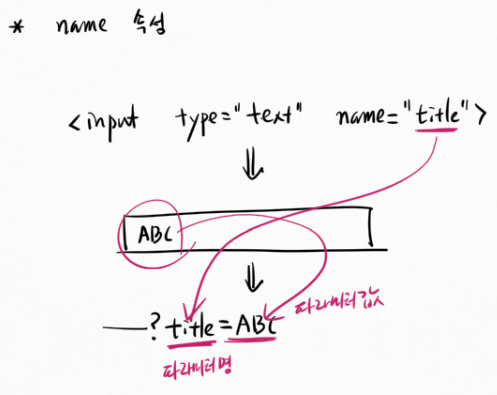 * name 속성
<input type="text" name="title">
ABC
?title=ABC
파라미터값
파라미터명